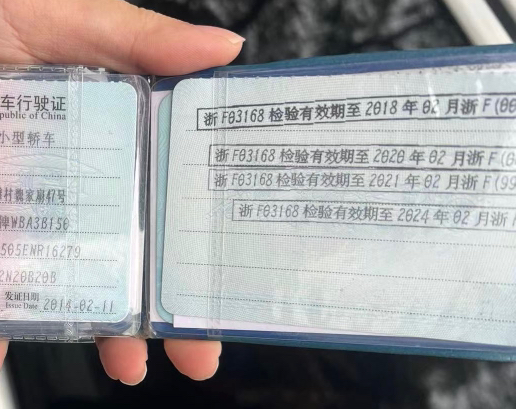 车行驶证
public of China
小型轿车
牌WBA3B150
505ENR16279
2N20B20B
发证日期
Issue Date 2014-02-11
浙F03168 检验有效期至 2018 年 02 月浙 F (00
浙F03168 检验有效期至 2020 年 02 月浙 F (0
浙F03168 检验有效期至 2021 年 02 月浙 F (99
浙F03168 检验有效期至 2024 年 02 月浙